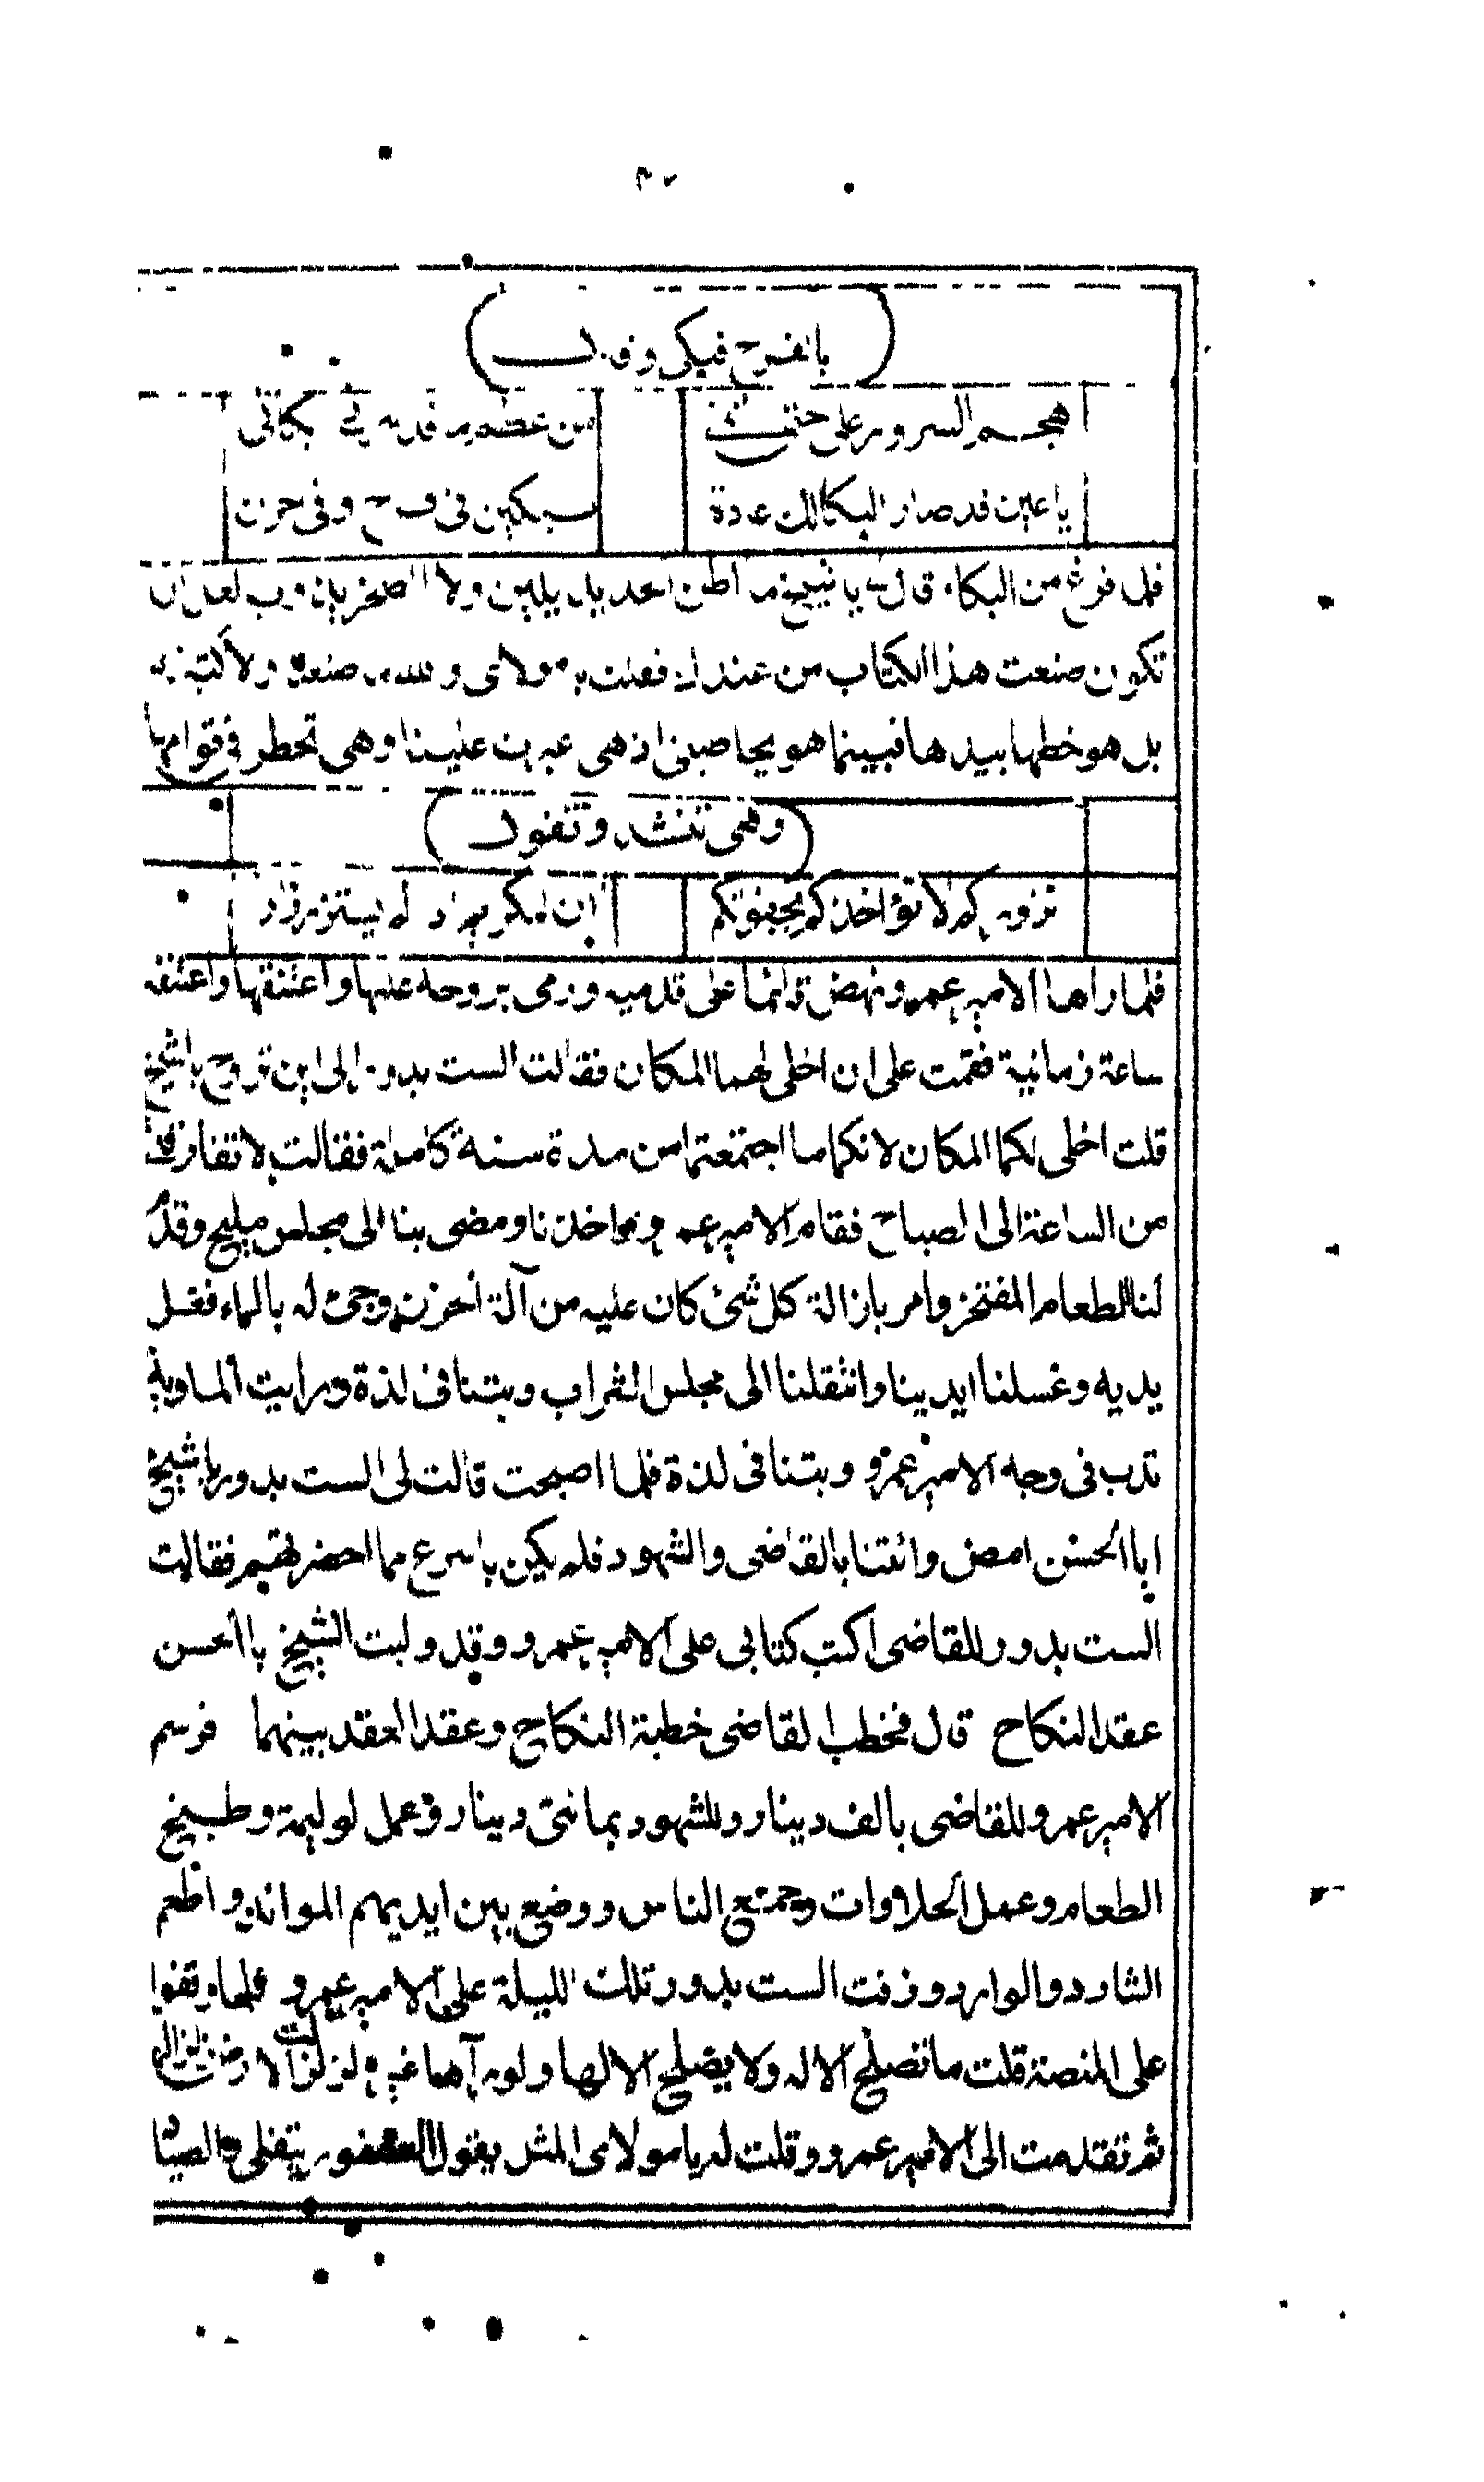 بالفرح فبكى وقال
هجم السرور على حتى من عظم ما قد سرني ابكاني
يا عين قد صار البكا لك عادة تبكين في فرح وفي حزن
فلما فرغ من البكاء قال يا شيخ ما اظن الحديد يلين ولا الصخر
تكون صنعت هذا الكتاب من عندك فقلت يا مولاي والله ما صنعته ولا كتبته
بل هو خطها بيدها فبينما هو يخاطبني اذ هي عبرت علينا وهي تخطر في قوامها
وهي تنشد وتقول
نزوركم لا نؤاخذكم بجفوتكم ان المكريم اذا لم يستزر زار
فلما راها الامير عمرو نهض قائما على قدميه ورمى بروحه عليها واعتنقها واعتنقته
ساعة زمانية فقمت على ان اخلى لهما المكان فقالت الست بدور الى اين تروح يا شيخ
قلت اخلى لكما المكان لانكما ما اجتمعتما من مدة سنة كاملة فقالت لا تفارقنا
من الساعة الى الصباح فقام الامير عمرو واخذنا ومضى بنا الى مجلس مليح وقدم
لنا الطعام المفتخر وامر بازالة كل شئ كان عليه من آلة الحزن وجئ له بالماء فغسل
يديه وغسلنا ايدينا وانتقلنا الى مجلس الشراب وبتنا في لذة ورايت الماوية
تدب في وجه الامير عمرو وبتنا في لذة فلما اصبحت قالت لى الست بدور يا شيخ
ابا الحسن امض وائتنا بالقاضى والشهود فلم يكن باسرع مما احضرتهم فقالت
الست بدور للقاضى اكتب كتابى على الامير عمرو وقد وليت الشيخ ابا الحسن
عقد النكاح قال فخطب القاضى خطبة النكاح وعقد العقد بينهما فرسم
الامير عمرو للقاضى بالف دينار وللشهود بمائتى دينار وعمل لوليمة وطبيخ
الطعام وعمل الحلاوات وجمع الناس ووضع بين ايديهم الموائد واطعم
الشارد والوارد وزفت الست بدور تلك الليلة على الامير عمرو فلما وقفوا
على المنصة قلت ما تصلح الا له ولا يصلح الا لها ولو رآها غيره لزلزلت الارض زلزالها
ثم تقدمت الى الامير عمرو وقلت له يا مولاى المثل يقول العصفور يتفلى والصياد